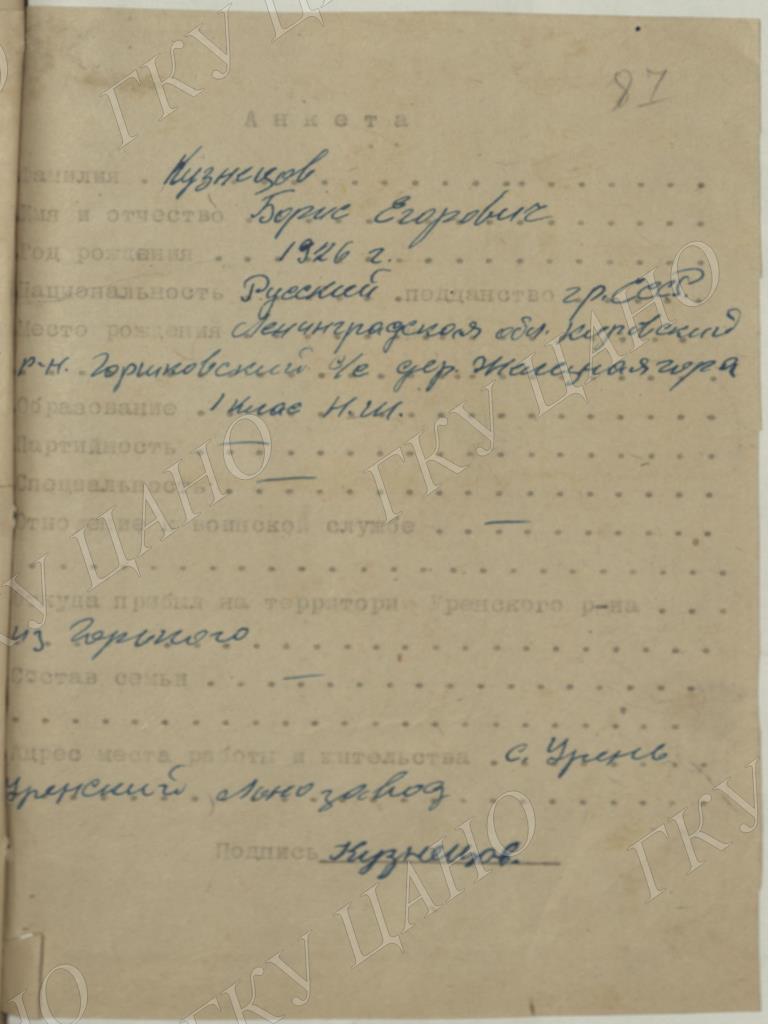 87
Анкета
Фамилия . Кузнецов
Имя и отчество Борис Егорович
Год рождения . . 1926 г.
Национальность Русский подданство гр. СССР.
Место рождения Ленинградская обл. Кировский
р-н. Горшковский с/с дер. Железная гора
Образование . 1 клас Н.Ш.
Партийность . —
Специальность . —
Отношение к воинской службе . . —
Откуда прибыл на территорию Уренского р-на . . .
из Горького
Состав семьи . . . —
Адрес места работы и жительства . с. Урень
Уренский Льнозавод
Подпись Кузнецов.
ГКУ ЦАНО
ГКУ ЦАНО
ГКУ ЦАНО
ГКУ ЦАНО
ГКУ